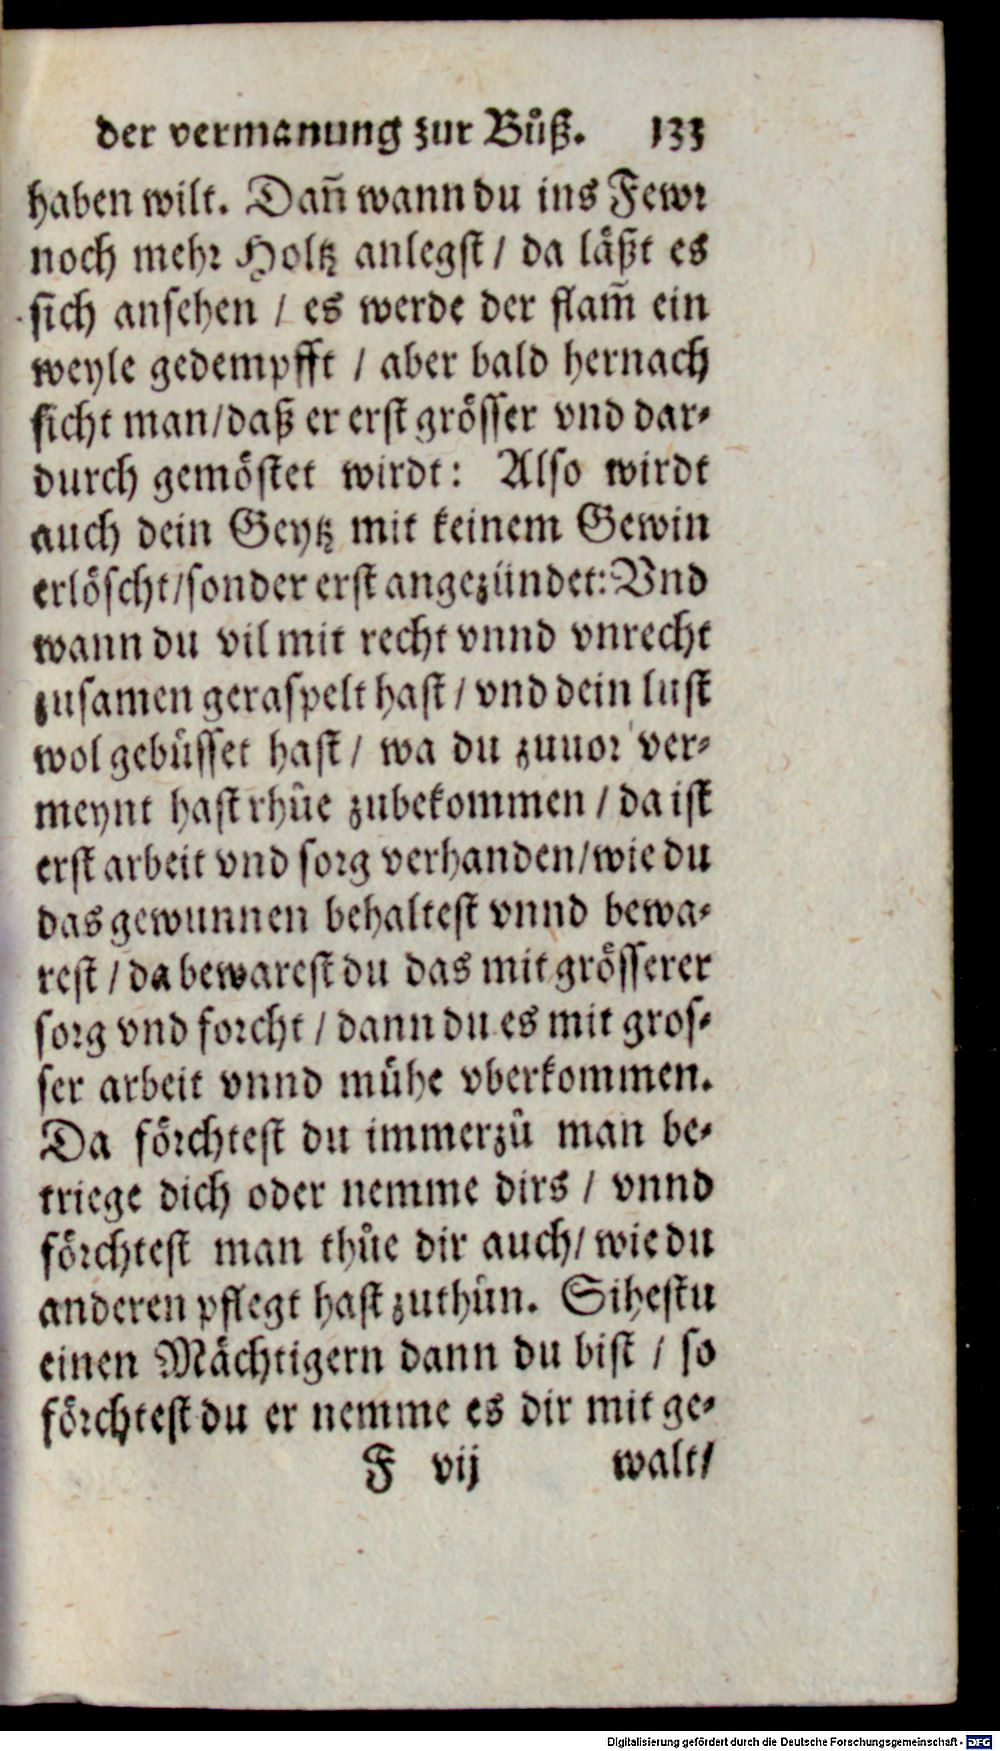 der vermanung zur Bůß. 133
haben wilt. Dañ wann du ins Fewr
noch mehr Holtz anlegst / da låßt es
sich ansehen / es werde der flam̃ ein
weyle gedempfft / aber bald hernach
sicht man/daß er erst grösser vnd dar-
durch gemöstet wirdt: Also wirdt
auch dein Geytz mit keinem Gewin
erlöscht/sonder erst angezündet: Vnd
wann du vil mit recht vnnd vnrecht
zusamen geraspelt hast / vnd dein lust
wol gebüsset hast / wa du zuuor ver-
meynt hast rhůe zubekommen / da ist
erst arbeit vnd sorg verhanden/wie du
das gewunnen behaltest vnnd bewa-
rest / da bewarest du das mit grösserer
sorg vnd forcht / dann du es mit gros-
ser arbeit vnnd mühe vberkommen.
Da förchtest du immerzů man be-
triege dich oder nemme dirs / vnnd
förchtest man thůe dir auch/ wie du
anderen pflegt hast zuthůn. Sihestu
einen Mächtigern dann du bist / so
förchtest du er nemme es dir mit ge-
F vij walt/
Digitalisierung gefördert durch die Deutsche Forschungsgemeinschaft - DFG